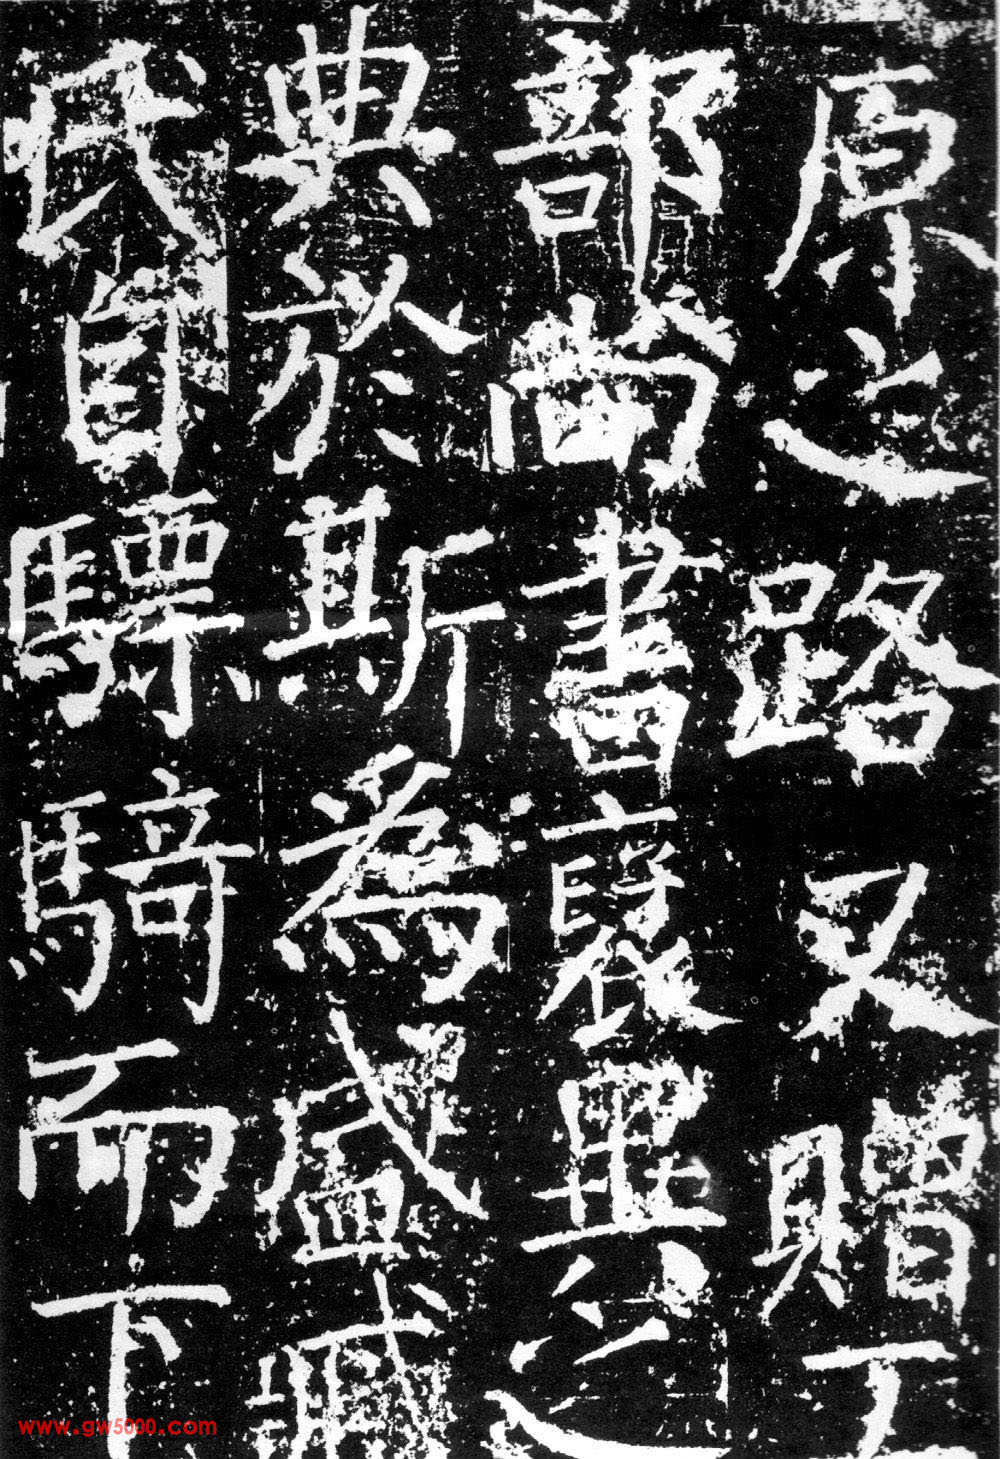 原之路又贈工
部尚書褒異之
典於斯爲盛臧
氏自驃騎而下
www.gw5000.com